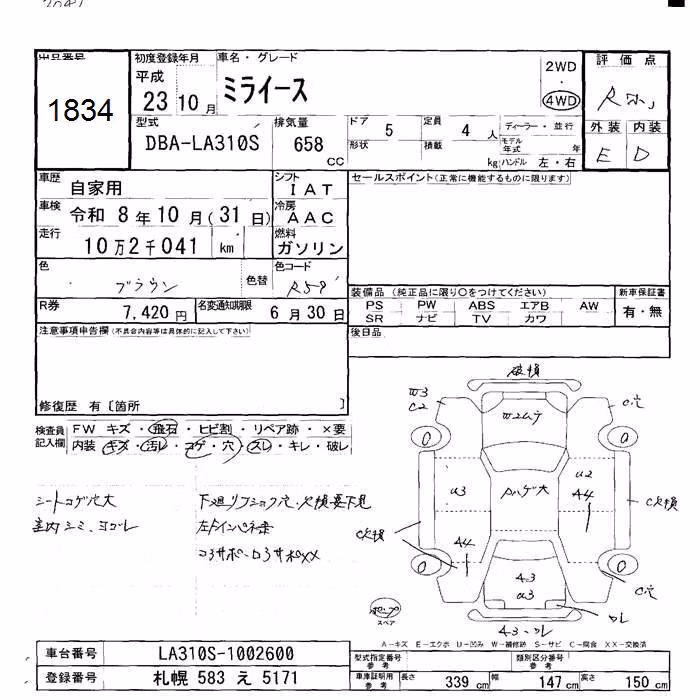 出品番号 初度登録年月 車名・グレード 評価点
1834 平成 23 10月 ミライース 2WD ・ 4WD R
外装 内装
E D
型式 DBA-LA310S 排気量 658 CC
ドア 5 定員 4 人 ディーラー・並行
形状 積載 kg モデル年式 年
ハンドル 左・右
車歴 自家用 シフト IAT セールスポイント(正常に機能するものに限ります)
車検 令和 8 年 10 月 (31 日) 冷房 AAC
走行 10万2千041 km 燃料 ガソリン
色 ブラウン 色替 色コード R58
装備品 (純正品に限り○をつけてください) 新車保証書
PS PW ABS エアB AW 有・無
SR ナビ TV カワ
R券 7,420円 名変通知期限 6月30日
後日品
注意事項申告欄(不具合内容等は具体的に記入して下さい)
修復歴 有〔箇所 〕
検査員記入欄 FW キズ・飛石・ヒビ割・リペア跡・×要
内装 キズ・汚レ・コゲ・穴・スレ・キレ・破レ
シートコゲ穴大
室内シミ、ヨゴレ
破損
W3
C2
C穴
U3
U2
A4
C欠損
C欠損
A4
C穴
A3
スペア
A-キズ E-エクボ U-凹み W-補修跡 S-サビ C-腐食 XX-交換済
車台番号 LA310S-1002600 型式指定番号 参考 類別区分番号 参考
登録番号 札幌 583 え 5171 車庫証明用 参考 長さ 339 cm 幅 147 cm 高さ 150 cm